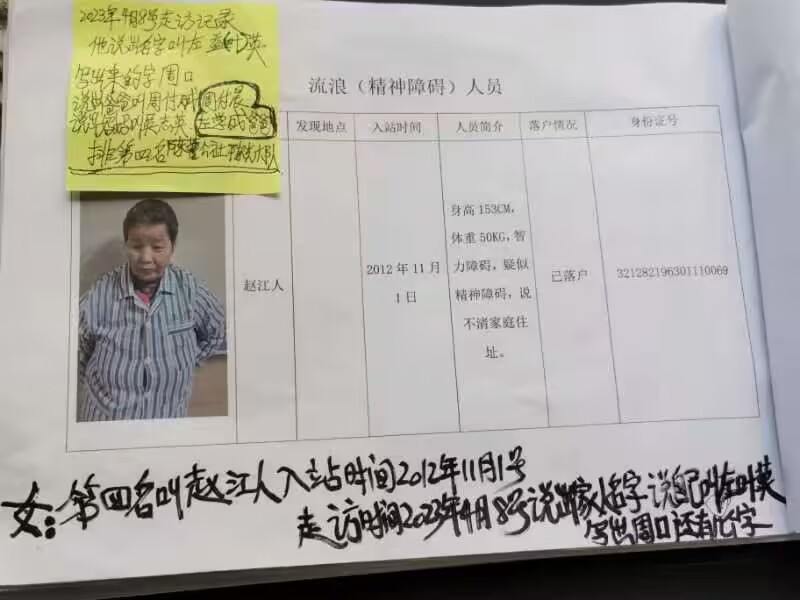 2023年4月8号走访记录
他说出名字叫左孟叶英
写出来的字周口
说出爸爸叫周付
说出妈妈叫吴志英 左学成
排第四名
流浪（精神障碍）人员
发现地点 入站时间 人员简介 落户情况 身份证号
赵江人
2012年11月
1日
身高153CM，
体重50KG，智
力障碍，疑似
精神障碍，说
不清家庭住
址。
已落户
321282196301110069
女：第四名叫赵江人入站时间2012年11月1号
走访时间2023年4月8号说出家人名字说自己叫左叶英
写出周口还有化字